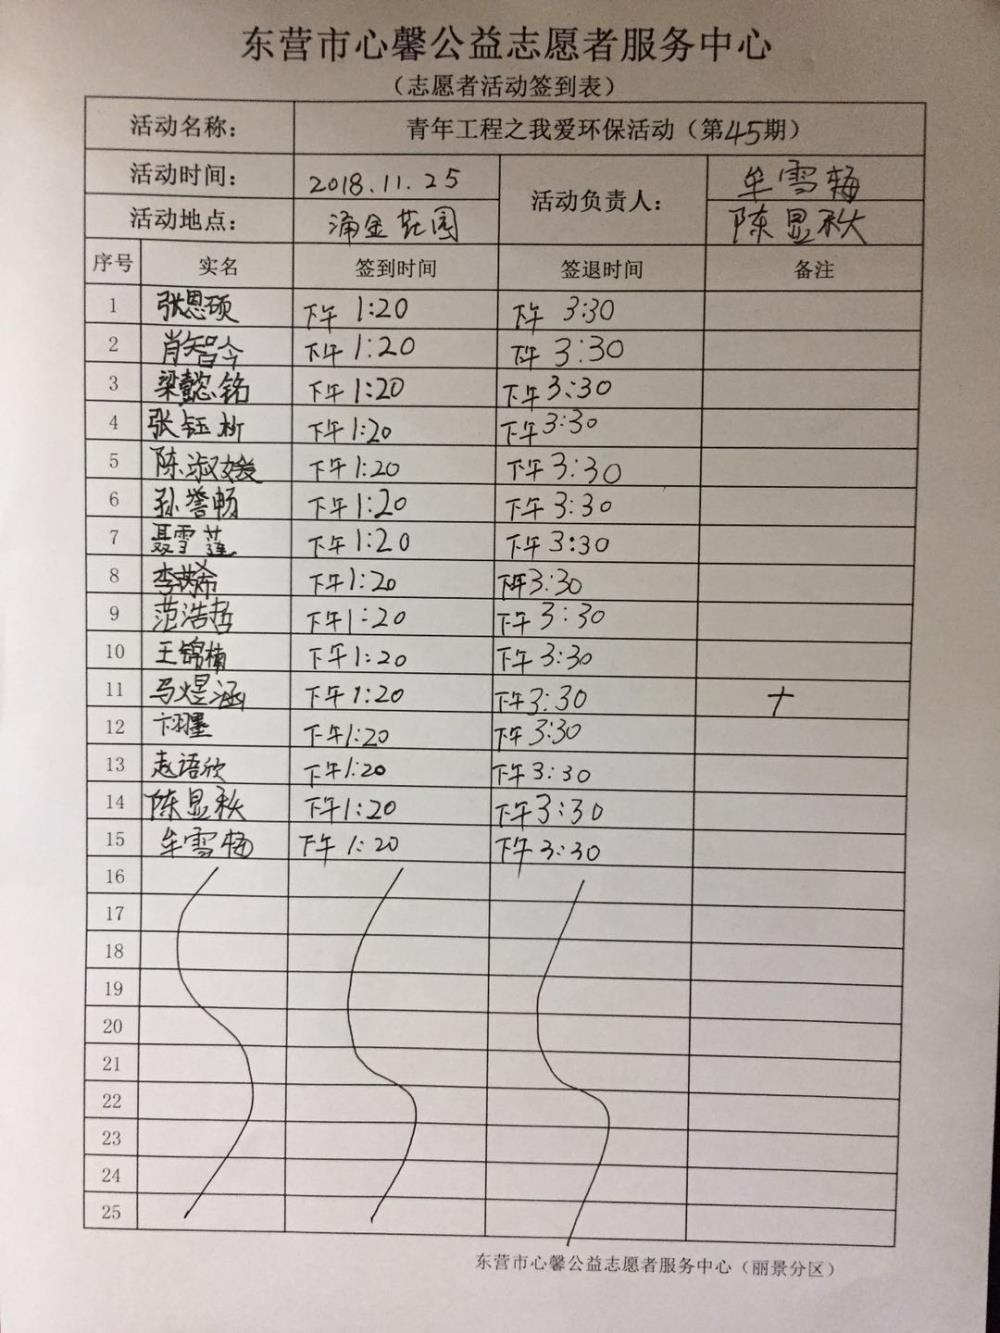 东营市心馨公益志愿者服务中心
（志愿者活动签到表）
活动名称： 青年工程之我爱环保活动（第45期）
活动时间： 2018.11.25 活动负责人： 牟雪梅
活动地点： 涌金花园 陈显秋
序号 实名 签到时间 签退时间 备注
1 张恩硕 下午 1:20 下午 3:30
2 肖智今 下午 1:20 下午 3:30
3 梁懿铭 下午 1:20 下午 3:30
4 张钰析 下午 1:20 下午 3:30
5 陈淑媛 下午 1:20 下午 3:30
6 孙誉畅 下午 1:20 下午 3:30
7 聂雪莲 下午 1:20 下午 3:30
8 下午 1:20 下午 3:30
9 范浩哲 下午 1:20 下午 3:30
10 王锦楠 下午 1:20 下午 3:30
11 马煜涵 下午 1:20 下午 3:30 +
12 卞翌墨 下午 1:20 下午 3:30
13 赵语欣 下午 1:20 下午 3:30
14 陈显秋 下午 1:20 下午 3:30
15 牟雪梅 下午 1:20 下午 3:30
16
17
18
19
20
21
22
23
24
25
东营市心馨公益志愿者服务中心（丽景分区）